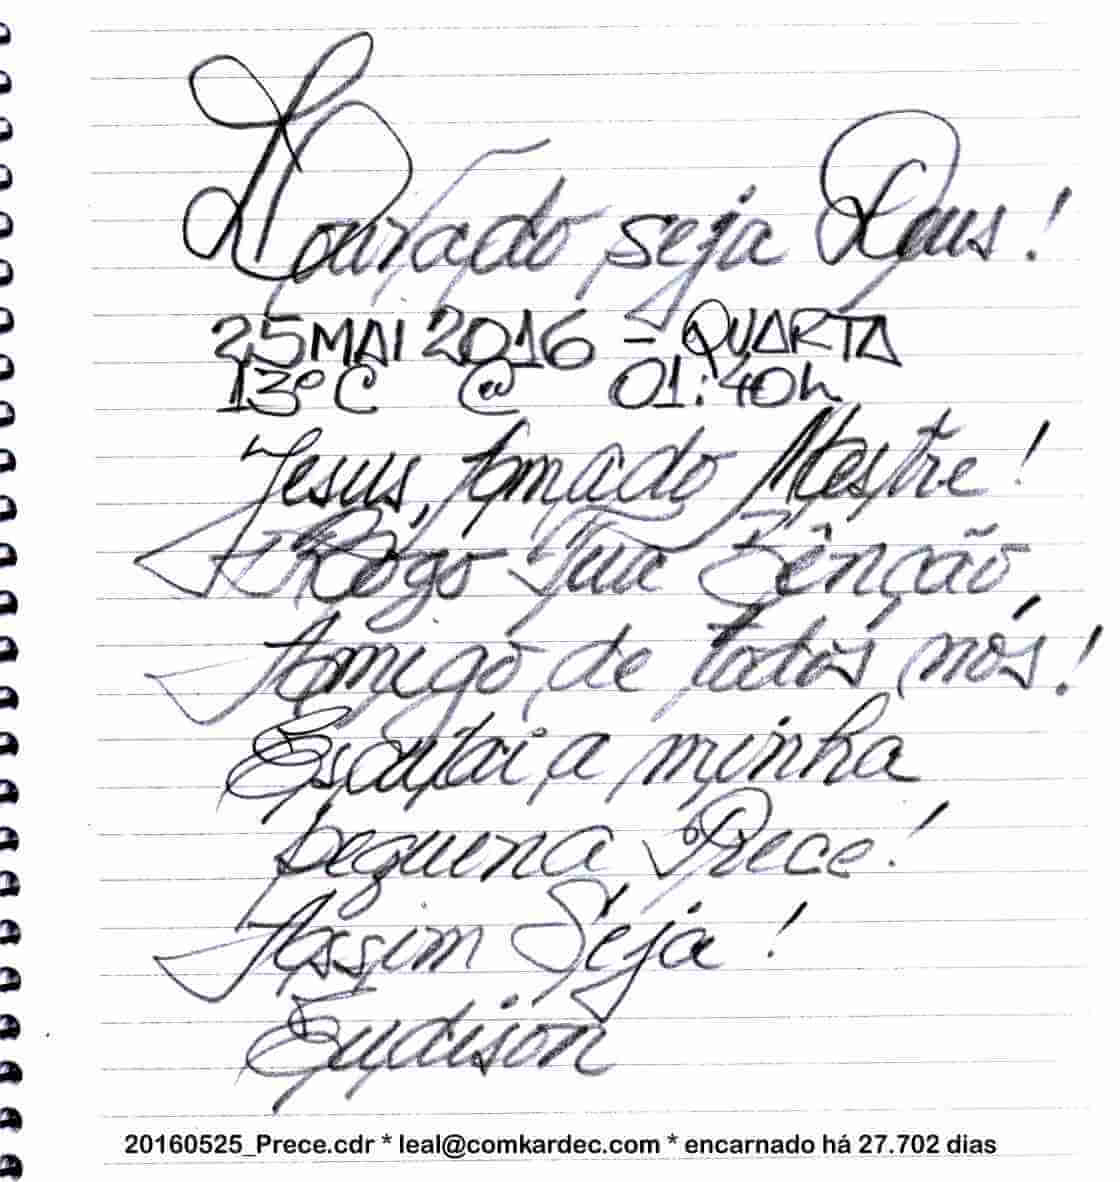 Louvado seja Deus!
25 MAI 2016 - QUARTA
13ºC @ 01:40h
Jesus, Amado Mestre!
Rogo Tua Bênção,
Amigo de todos nós!
Escutai a minha
pequena Prece!
Assim Seja!
Eudison
20160525_Prece.cdr * leal@comkardec.com * encarnado há 27.702 dias